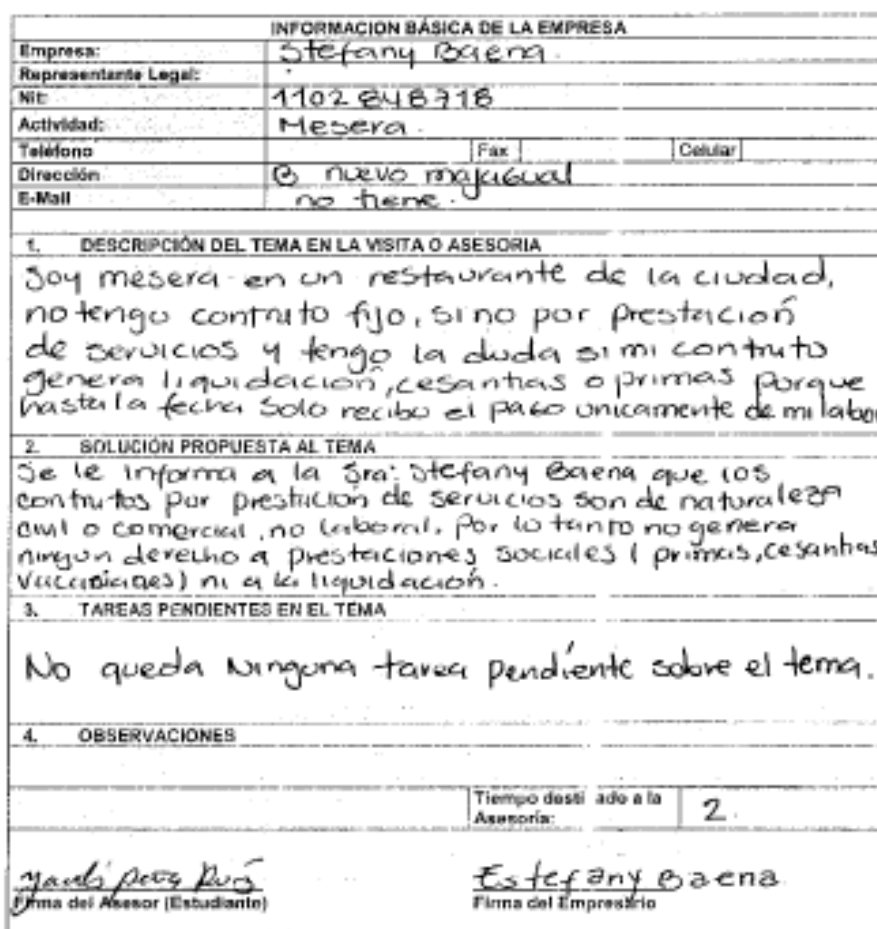 INFORMACION BÁSICA DE LA EMPRESA
Empresa: Stefany Baena.
Representante Legal:
Nit: 1102848718
Actividad: Mesera.
Teléfono Fax Celular
Dirección B nuevo majagual
E-Mail no tiene.
1. DESCRIPCIÓN DEL TEMA EN LA VISITA O ASESORIA
Soy mesera en un restaurante de la ciudad,
no tengo contrato fijo, sino por prestación
de servicios y tengo la duda si mi contrato
genera liquidación, cesantias o primas porque
hasta la fecha solo recibo el pago unicamente de mi labor
2. SOLUCIÓN PROPUESTA AL TEMA
Se le informa a la Sra: Stefany Baena que los
contratos por prestación de servicios son de naturaleza
civil o comercial, no laboral. Por lo tanto no genera
ningun derecho a prestaciones sociales (primas, cesantias
vacaciones) ni a la liquidación.
3. TAREAS PENDIENTES EN EL TEMA
No queda Ninguna tarea pendiente sobre el tema.
4. OBSERVACIONES
Tiempo desti ado a la
Asesoría: 2
Estefany Baena
Firma del Asesor (Estudiante) Firma del Empresario